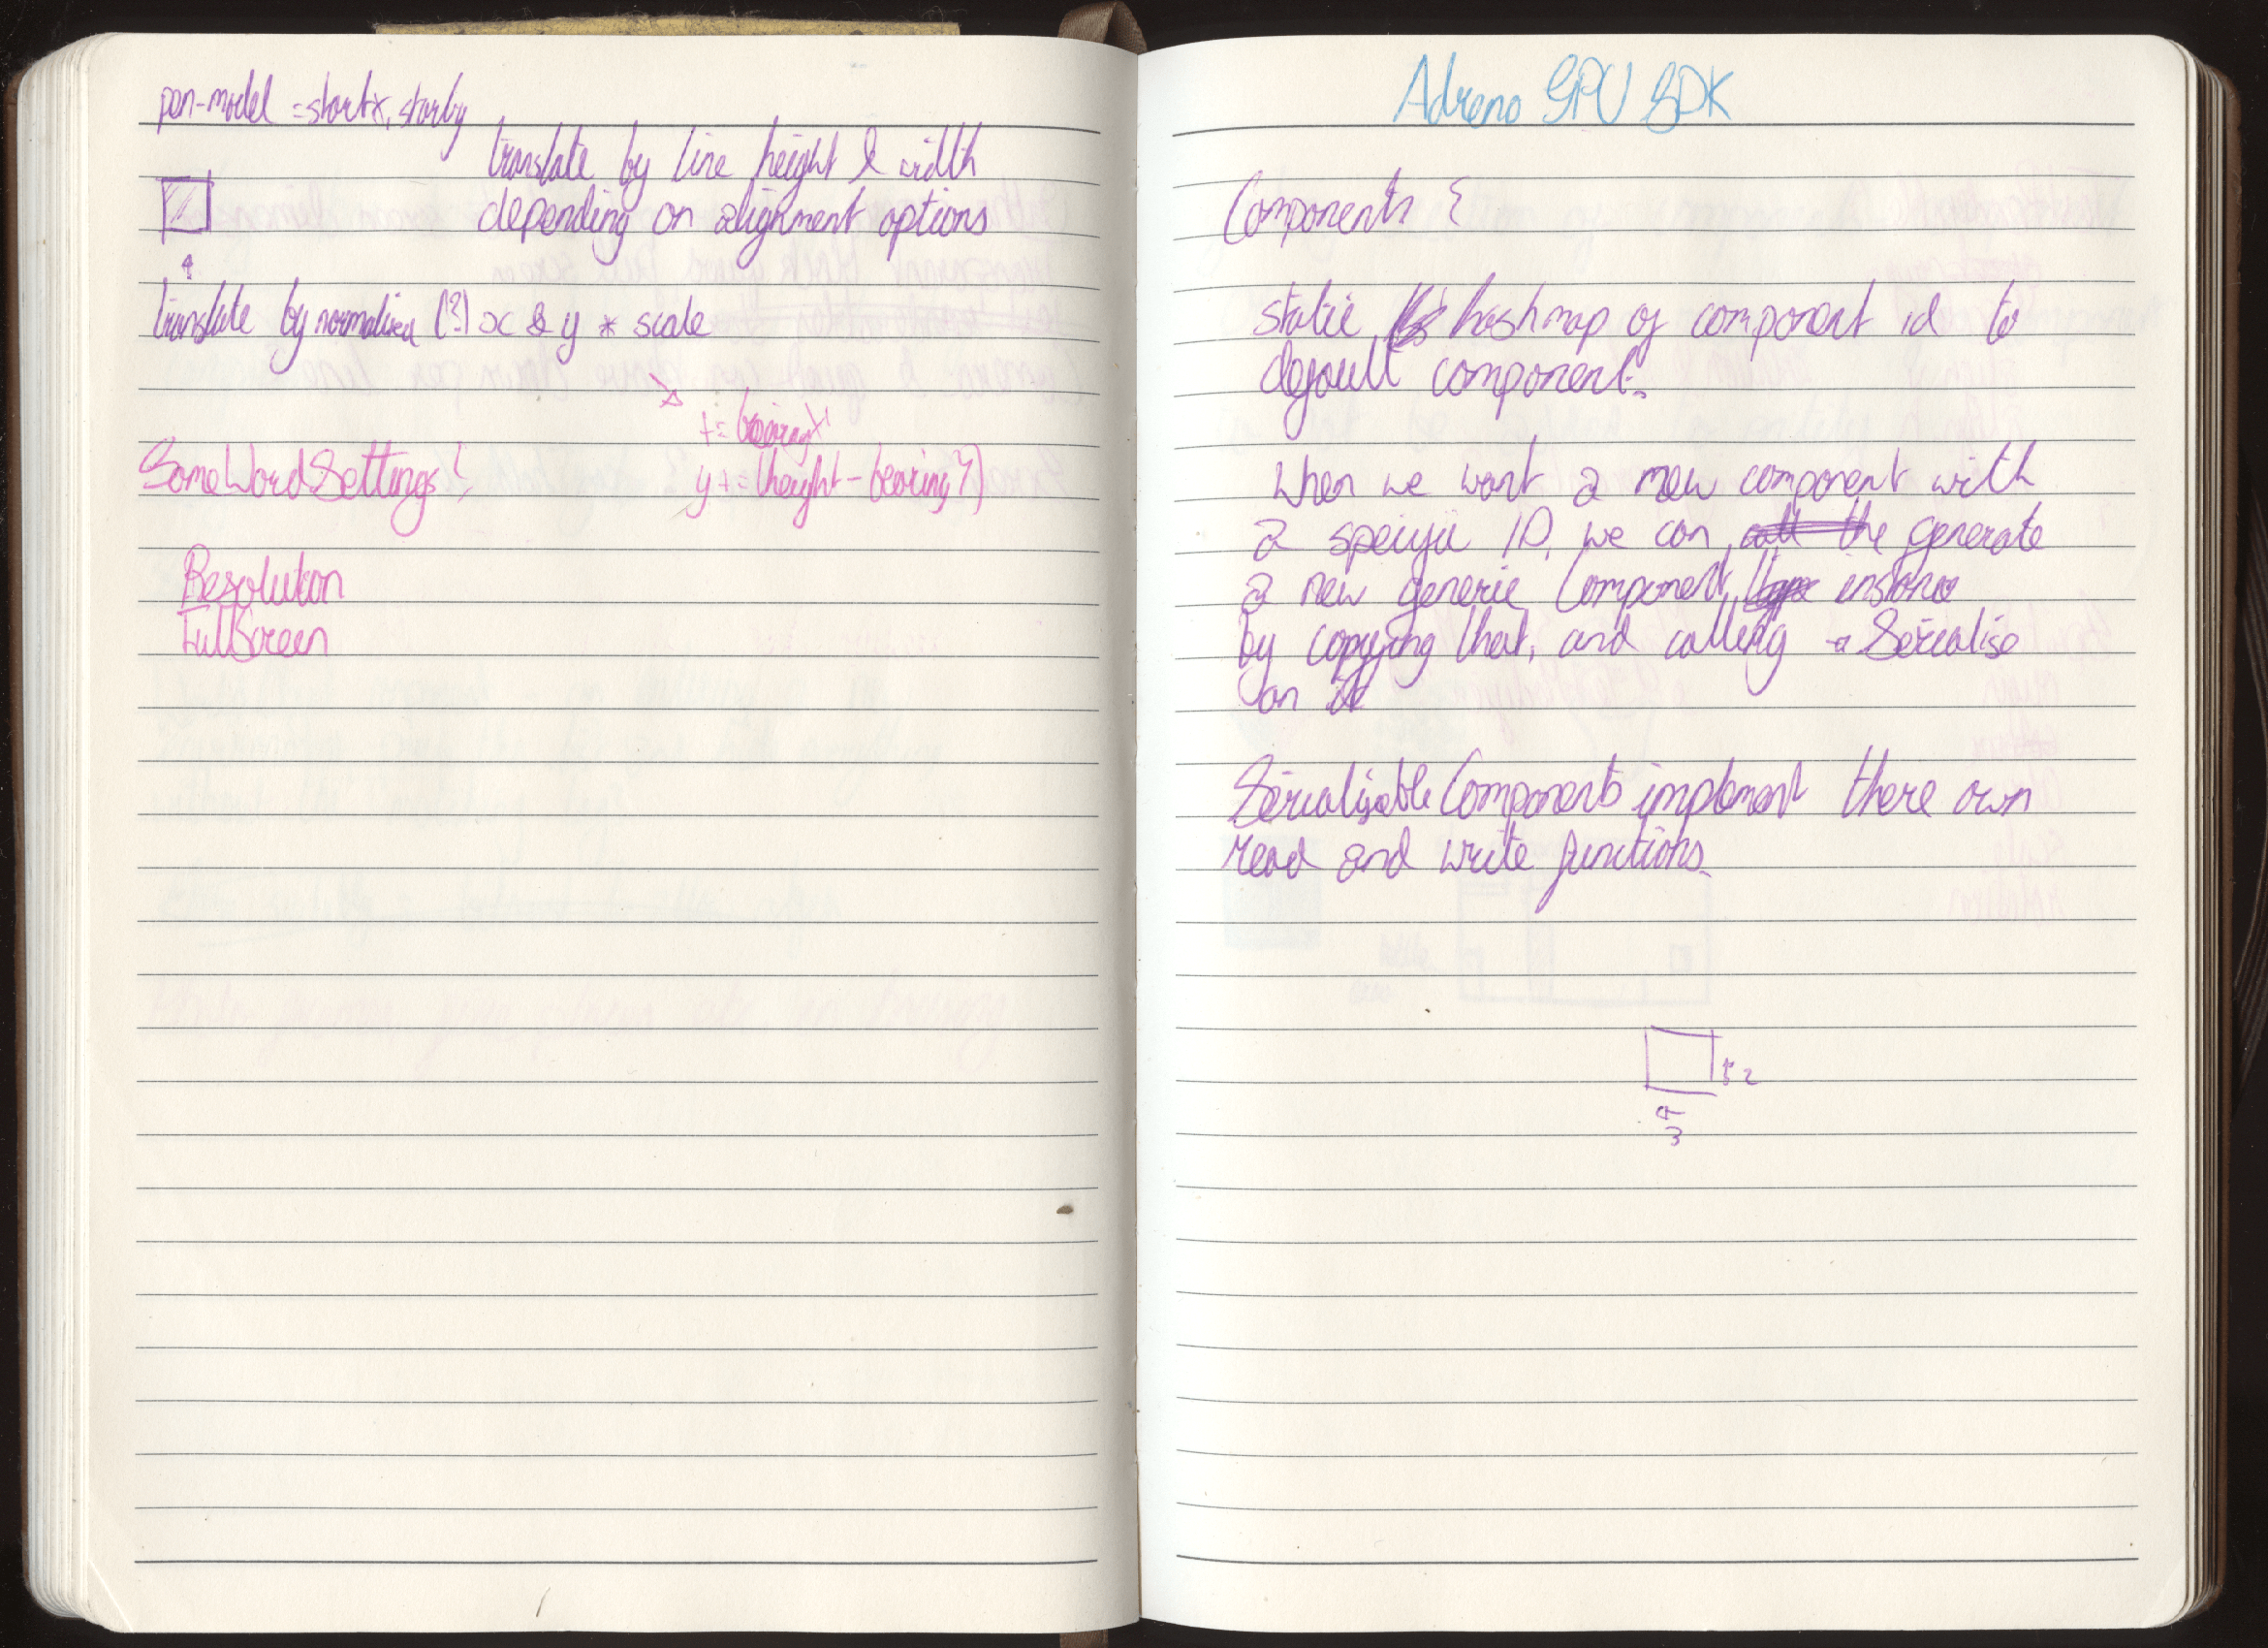 pen-model = startx, starty
translate by line height & width
depending on alignment options
translate by normalised (?) x & y * scale
+= bearingX
y += (height - bearingY)
SomeWordSettings {
Resolution
FullScreen
Adreno GPU SDK
Components {
static hashmap of component id to
default component.
When we want a new component with
a specific ID, we can call the generate
a new generic Component type instance
by copying that, and calling → Serialise
on it
Serialisable Components implement there own
read and write functions.
2
3